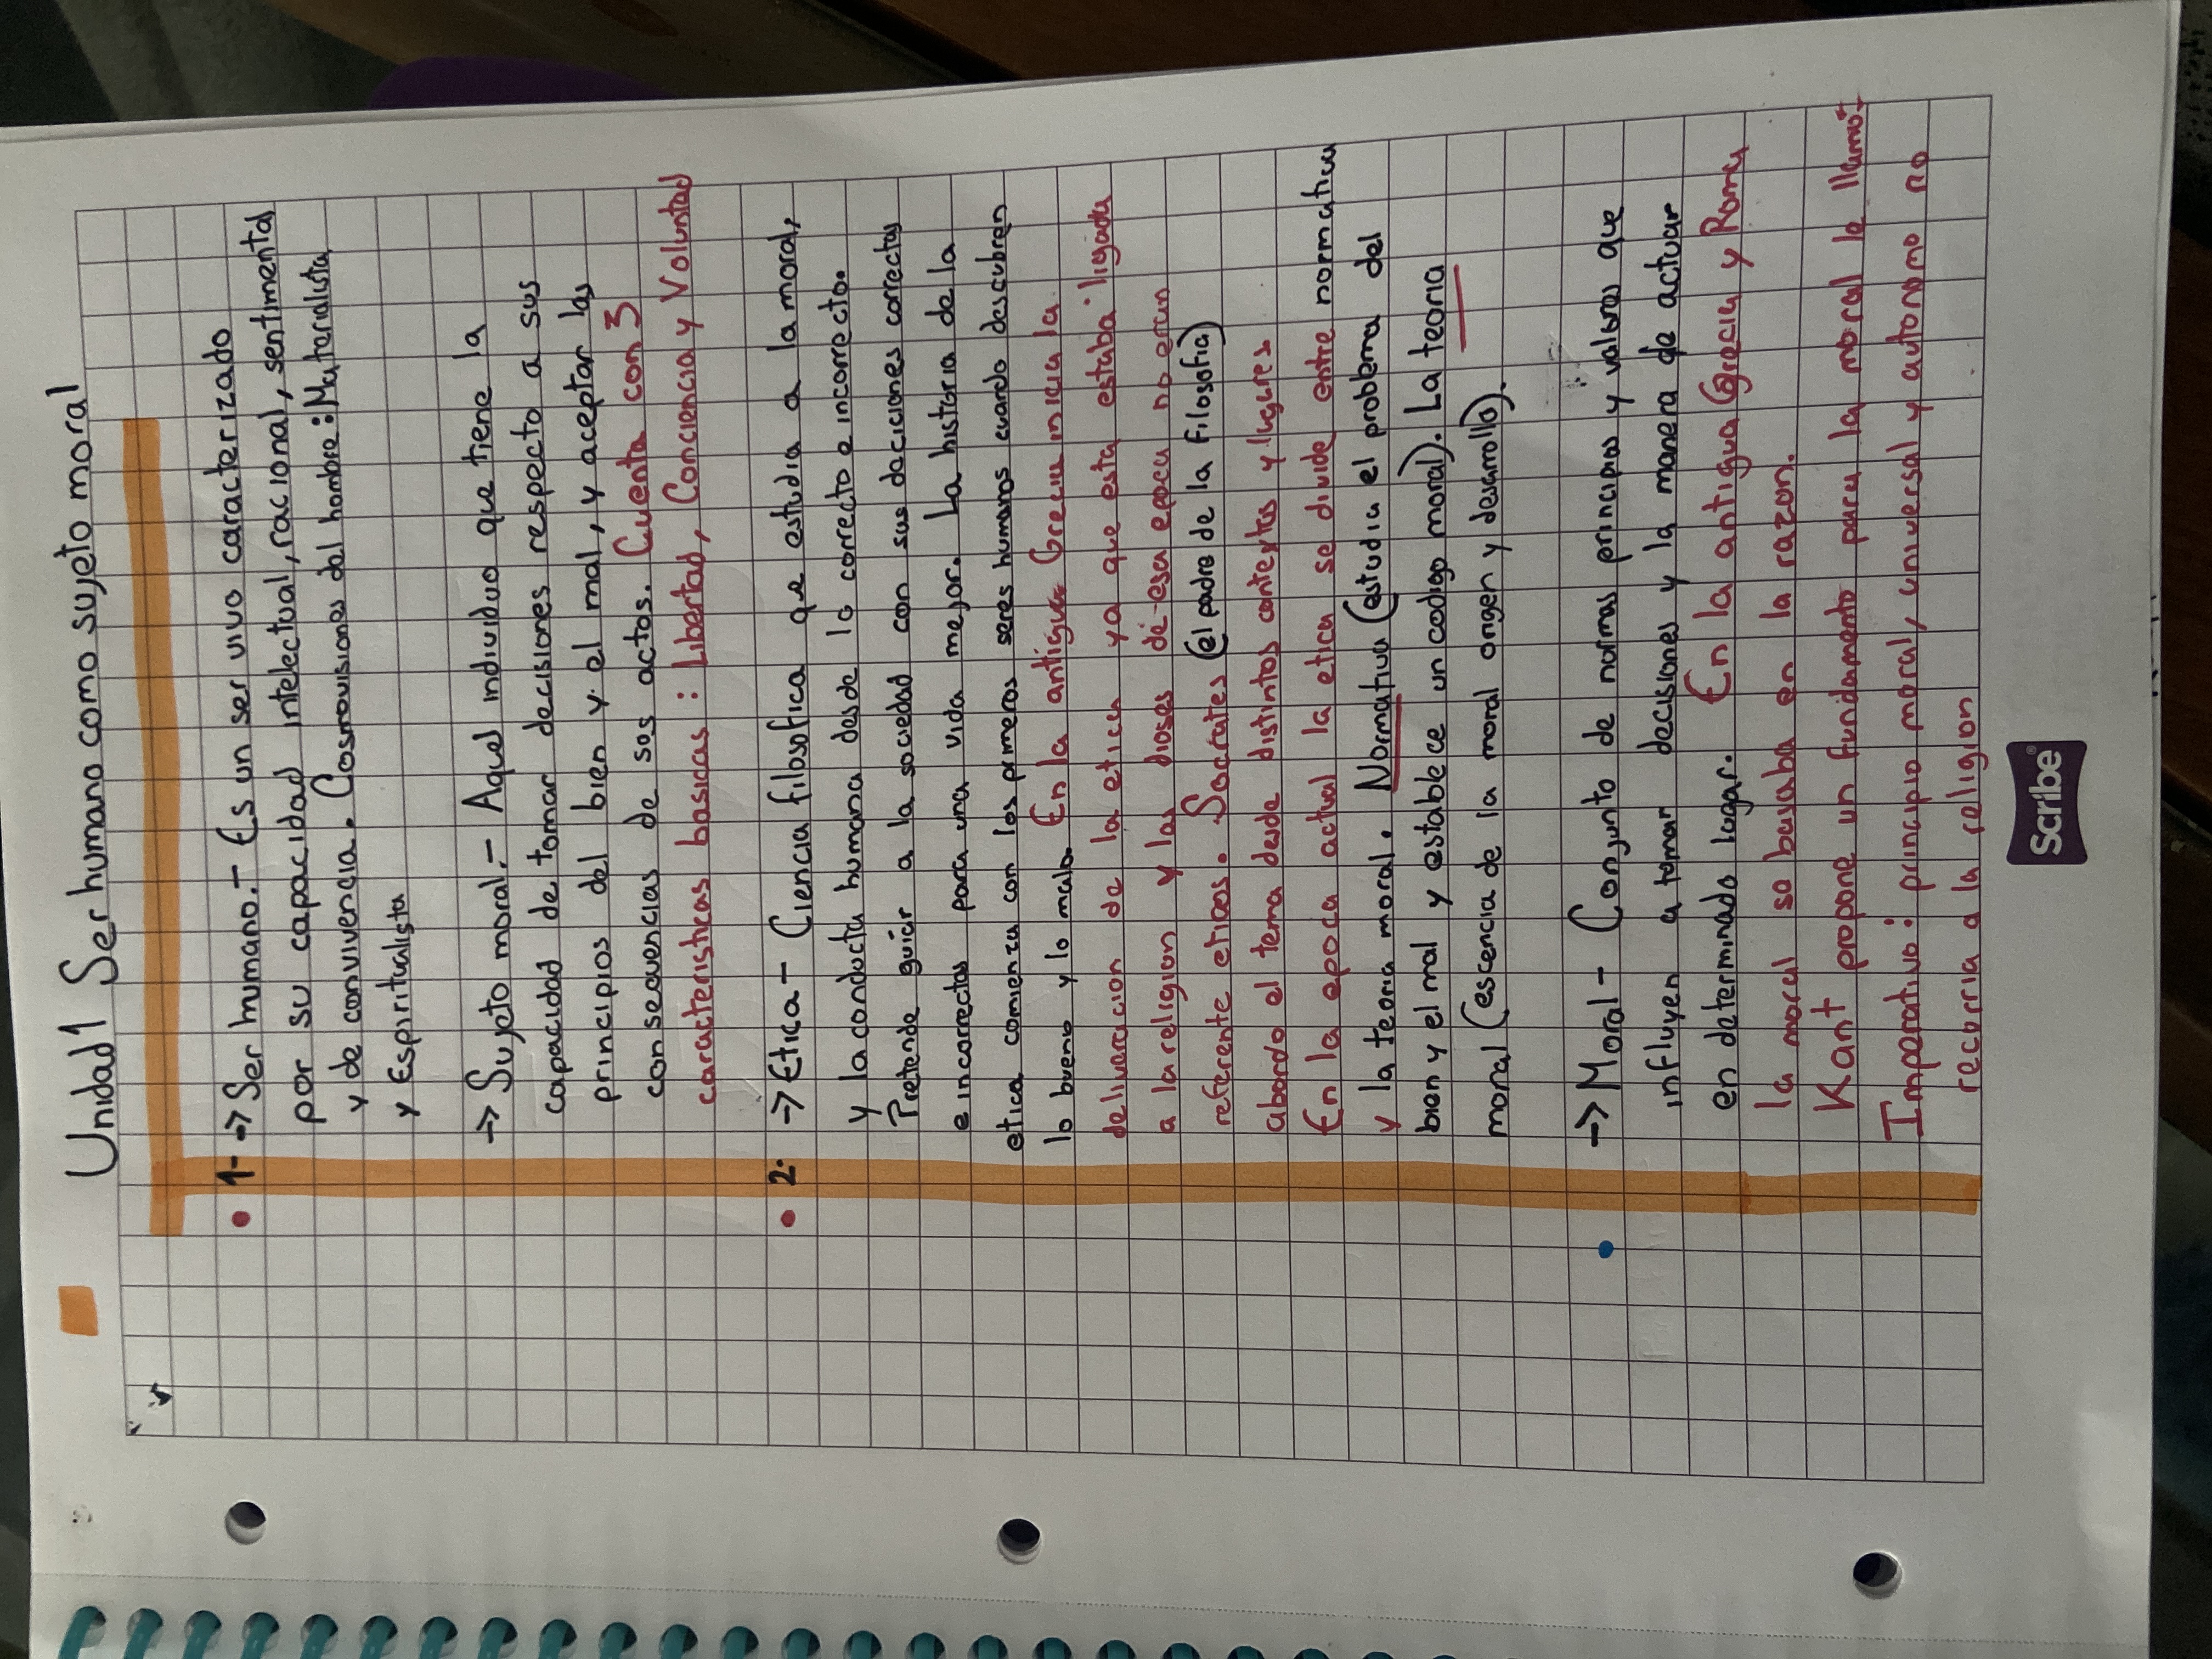 Unidad 1 Ser humano como sujeto moral
1- → Ser humano.- Es un ser vivo caracterizado
por su capacidad intelectual, racional, sentimental
y de convivencia. Cosmovisiones del hombre: Materialista
y Espiritualista
→ Sujeto moral.- Aquel individuo que tiene la
capacidad de tomar decisiones respecto a sus
principios del bien y el mal, y aceptar las
consecuencias de sos actos. Cuenta con 3
caracteristicas basicas : Libertad, Conciencia y Voluntad
2. → Etica - Ciencia filosofica que estudia a la moral,
y la conducta humana desde lo correcto e incorrecto.
Pretende guiar a la sociedad con sus deciciones correctas
e incorrectas para una vida mejor. La historia de la
etica comienza con los primeros seres humanos cuando descubren
lo bueno y lo malo. En la antigua Grecia inicia la
deliveracion de la etica ya que esta estaba ligada
a la religion y los dioses de esa epoca no eran
referente eticos. Socrates (el padre de la filosofia)
abordo el tema desde distintos contextos y lugares.
En la epoca actual la etica se divide entre normativa
y la teoria moral. Normativa (estudia el problema del
bien y el mal y establece un codigo moral). La teoria
moral (escencia de la moral origen y desarrollo).
→ Moral - Conjunto de normas principios y valores que
influyen a tomar decisiones y la manera de actuar
en determinado lugar. En la antigua Grecia y Roma
la moral se basaba en la razon.
Kant propone un fundamento para la moral le llamo:
Imperativo: principio moral, universal y autonomo no
recorria a la religion
Scribe®